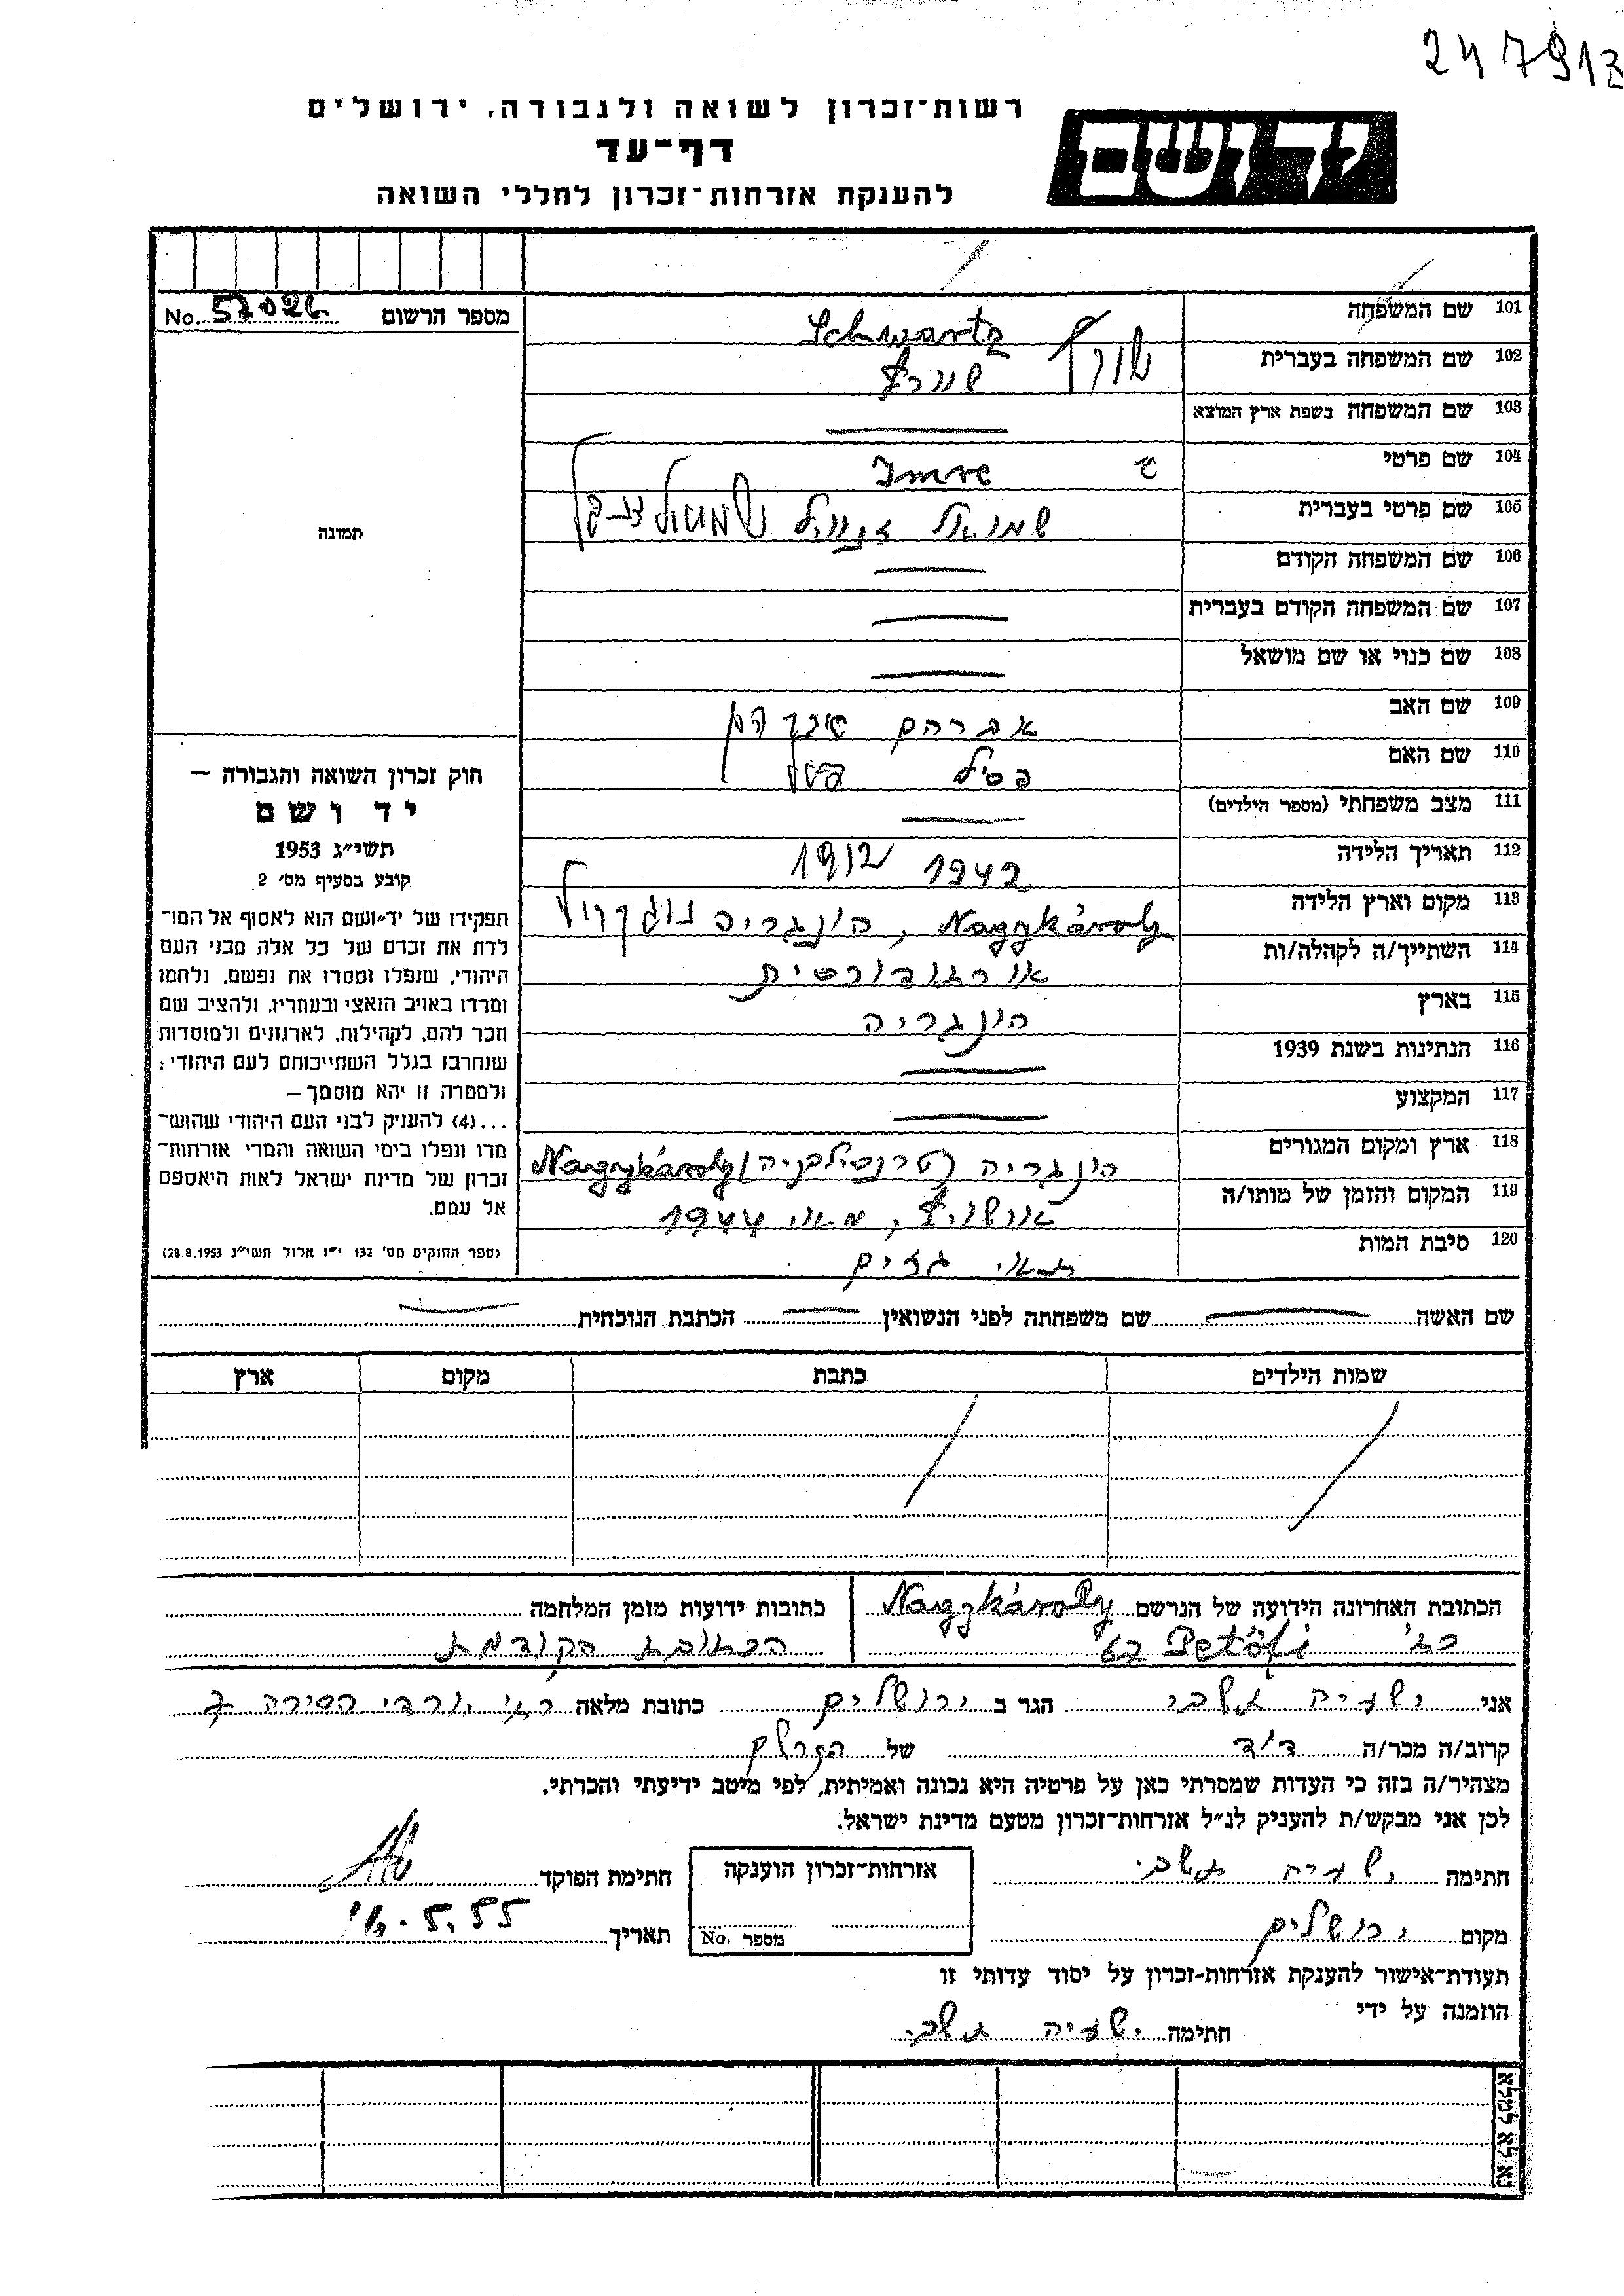 247913
רשות־זכרון לשואה ולגבורה, ירושלים
דף־עד
להענקת אזרחות־זכרון לחללי השואה
יד ושם
מספר הרשום No. 57026
תמונה
101 שם המשפחה Schwartz
102 שם המשפחה בעברית שוורץ
103 שם המשפחה בשפת ארץ המוצא
104 שם פרטי Imre
105 שם פרטי בעברית שמואל זנוויל
106 שם המשפחה הקודם
107 שם המשפחה הקודם בעברית
108 שם כנוי או שם מושאל
109 שם האב אברהם
110 שם האם
111 מצב משפחתי (מספר הילדים)
112 תאריך הלידה 1942
113 מקום וארץ הלידה Nagykároly, הונגריה
114 השתייך/ה לקהלה/ות אורטודוכסית
115 בארץ הונגריה
116 הנתינות בשנת 1939
117 המקצוע
118 ארץ ומקום המגורים הונגריה (טרנסילבניה) Nagykároly
119 המקום והזמן של מותו/ה אושויץ, מאי 1944
120 סיבת המות תאי גזים
חוק זכרון השואה והגבורה —
יד ושם
תשי״ג 1953
קובע בסעיף מס׳ 2
תפקידו של יד־ושם הוא לאסוף אל המו־
לדת את זכרם של כל אלה מבני העם
היהודי, שנפלו ומסרו את נפשם, נלחמו
ומרדו באויב הנאצי ובעוזריו, ולהציב שם
וזכר להם, לקהילות, לארגונים ולמוסדות
שנחרבו בגלל השתייכותם לעם היהודי;
ולמטרה זו יהא מוסמך—
...(4) להעניק לבני העם היהודי שהוש־
מדו ונפלו בימי השואה והמרי אזרחות־
זכרון של מדינת ישראל לאות היאספם
אל עמם.
(ספר החוקים מס׳ 132 י״ז אלול תשי״ג 28.8.1953)
שם האשה שם משפחתה לפני הנשואין הכתבת הנוכחית
שמות הילדים כתבת מקום ארץ
הכתובת האחרונה הידועה של הנרשם Nagykároly
רח׳ Petőfi 62
כתובות ידועות מזמן המלחמה
הכתובת הקודמת
אני ישעיה תשבי הגר ב ירושלים כתובת מלאה רח׳ יורדי הסירה 7
קרוב/ה מכר/ה דוד של הנרשם
מצהיר/ה בזה כי העדות שמסרתי כאן על פרטיה היא נכונה ואמיתית, לפי מיטב ידיעתי והכרתי.
לכן אני מבקש/ת להעניק לנ״ל אזרחות־זכרון מטעם מדינת ישראל.
חתימה ישעיה תשבי
אזרחות־זכרון הוענקה
חתימת הפוקד
מקום ירושלים
מספר No.
תאריך 16.5.55
תעודת־אישור להענקת אזרחות־זכרון על יסוד עדותי זו
הוזמנה על ידי
חתימה ישעיה תשבי
נא לא למלא